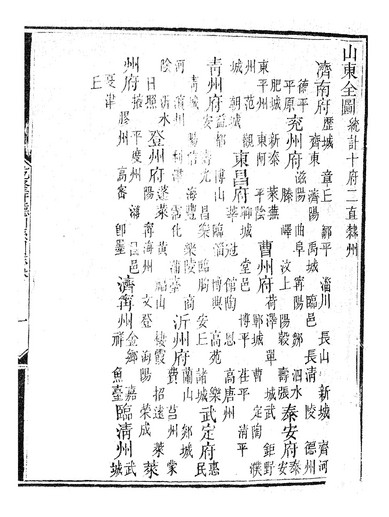 山東全圖 統計十府二直隸州
濟南府 歷城 章丘 鄒平 淄川 長山 新城 齊河
齊東 濟陽 禹城 臨邑 長清 陵 德州
德平 平原 兗州府 滋陽 曲阜 寧陽 鄒 泗水
滕 嶧 汶上 陽穀 壽張 泰安府 泰安
肥城 新泰 萊蕪
東平州 東阿 平陰 曹州府 荷澤 單 城武 鉅野
鄆城 曹 定陶 濮
州 范
城 朝城 東昌府 聊城 堂邑 博平 茌平 清平
莘 冠 館陶 恩 高唐州
青州府 益都 博山 臨淄 博興 高苑 樂
安 壽光 昌樂 臨朐 安丘 諸城 武定府 惠民
青城 陽信 海豐 樂陵 商
河 濱州 利津 霑化 蒲臺 沂州府 蘭山 郯城
費 莒州 蒙
陰 沂水
日照 登州府 蓬萊 黃 福山 棲霞 招遠 萊
陽 寧海州 文登 海陽 榮成 萊
州府 掖 平度州 昌邑
膠州 高密 即墨 濟寧州 金鄉 嘉
祥 魚臺 臨清州 武城
夏津
丘